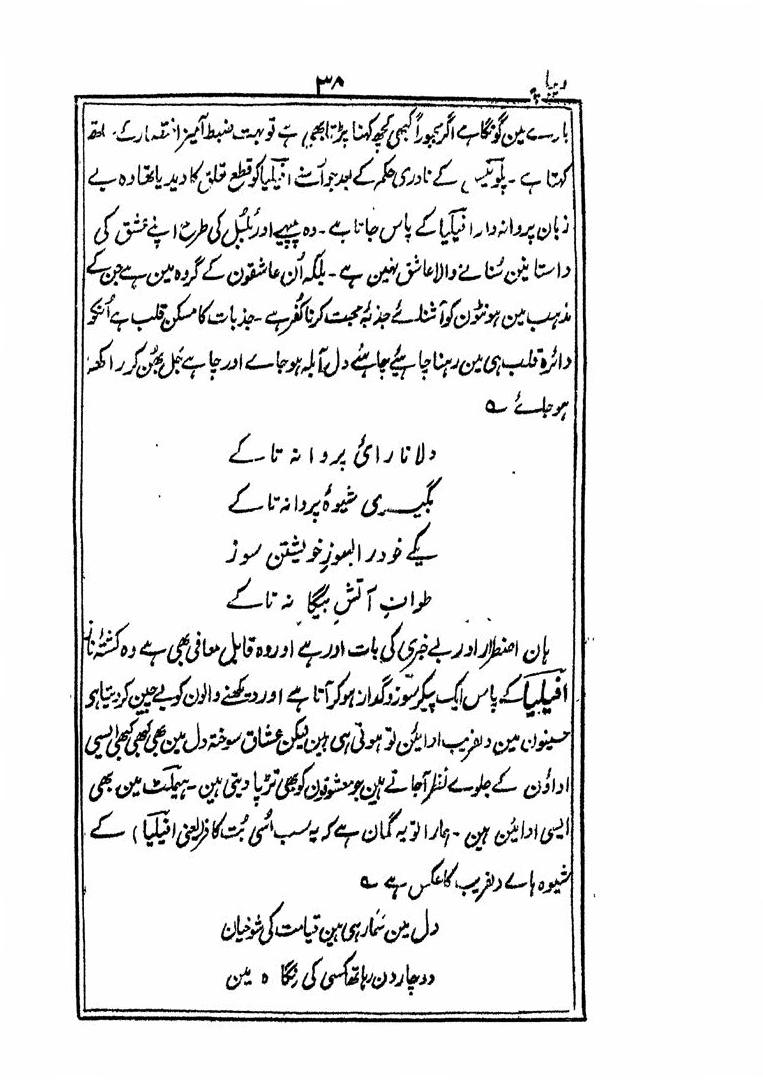 ۳۸
بارے مین گونگا ہے اگر مجبوراً کبھی کچھ کہنا پڑتا بھی ہے تو بہت ضبط آمیز اختصار کے ساتھ
کہتا ہے ۔ پلونیس کے نادری حکم کے بعد جو اُسنے افیلیا کو قطع تعلق کا دیدیا تھا وہ بے
زبان پروانہ وار افیلیا کے پاس جاتا ہے ۔ وہ پپیہے اور بُلبُل کی طرح اپنے عشق کی
داستانین سُنانے والا عاشق نہین ہے ۔ بلکہ اُن عاشقون کے گروہ مین ہے جن کے
مذہب مین ہونٹون کو آشنائے جذبۂ محبت کرنا کفر ہے ۔ جذبات کا مسکن قلب ہے اُنکو
دائرہ قلب ہی مین رہنا چاہیئے چاہئے دل آبلہ ہو جاے اور چاہے جَل بھُن کر راکھ
ہو جائے ؎
دلا نارائ پروانہ تا کے
نگیری شیوۂ پروانہ تا کے
یکے خود را بسوزِ خویشتن سوز
طوافِ آتشِ بیگانہ تا کے
ہان اضطرار اور بے خبری کی بات اور ہے اور وہ قابل معافی بھی ہے وہ کشتۂ ناز
افیلیا کے پاس ایک پیکر سوز و گداز ہو کر آتا ہے اور دیکھنے والون کو بے چین کر دیتا ہی
حسینون مین دلفریب ادایئن تو ہوتی ہی ہین لیکن عشاق سوختہ دل مین بھی کبھی کبھی ایسی
اداؤن کے جلوے نظر آ جاتے ہین جو معشوقون کو بھی تڑپا دیتی ہین ۔ ہیملٹ مین بھی
ایسی ادایئن ہین ۔ ہمارا تو یہ گمان ہے کہ یہ سب اُسی بُت کافر (یعنی افیلیا) کے
شیوہ ہاے دلفریب کا عکس ہے ؎
دل مین سمارہی ہین قیامت کی شوخیان
دو چار دن رہا تھا کسی کی نگاہ مین